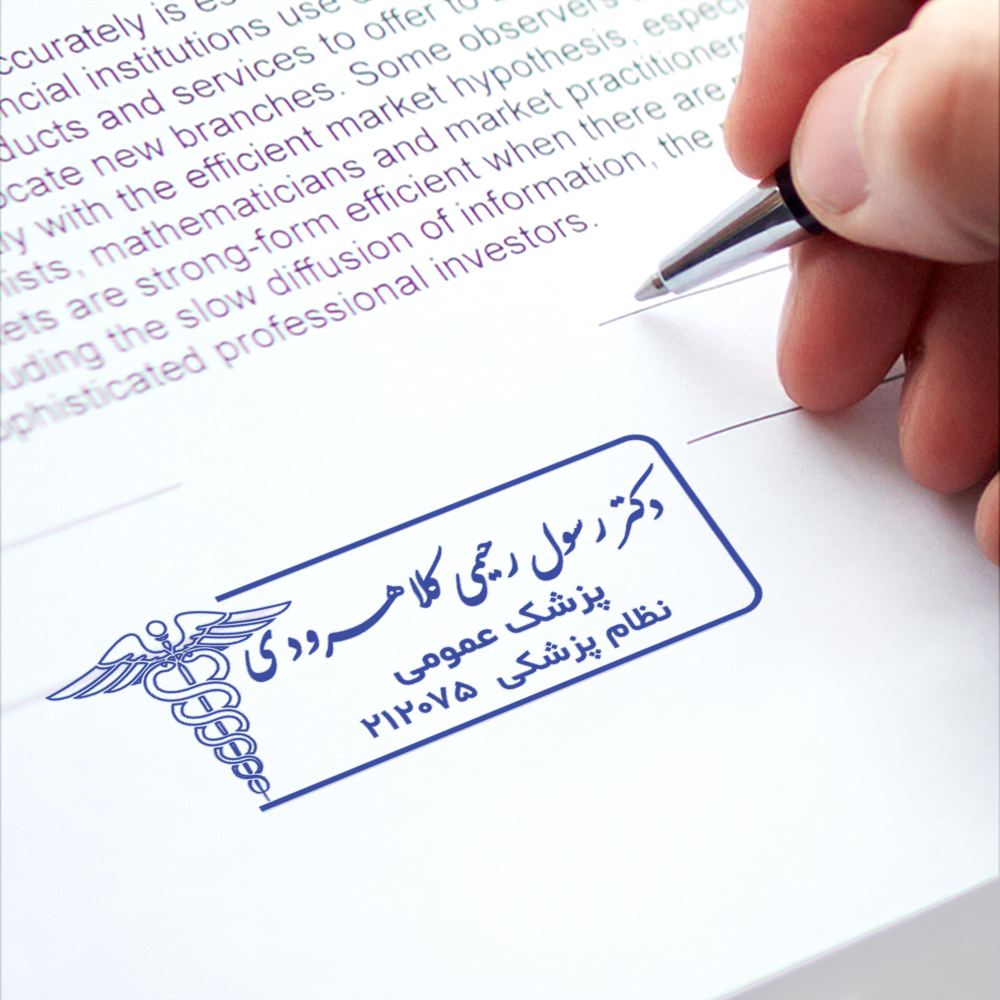 ccurately is es
ncial institutions use
ducts and services to offer to
ocate new branches. Some observers
ly with the efficient market hypothesis, especi
ists, mathematicians and market practitioners
ets are strong-form efficient when there are
uding the slow diffusion of information, the
ophisticated professional investors.
دکتر رسول رحیمی کلاهرودی
پزشک عمومی
نظام پزشکی ۲۱۲۰۷۵